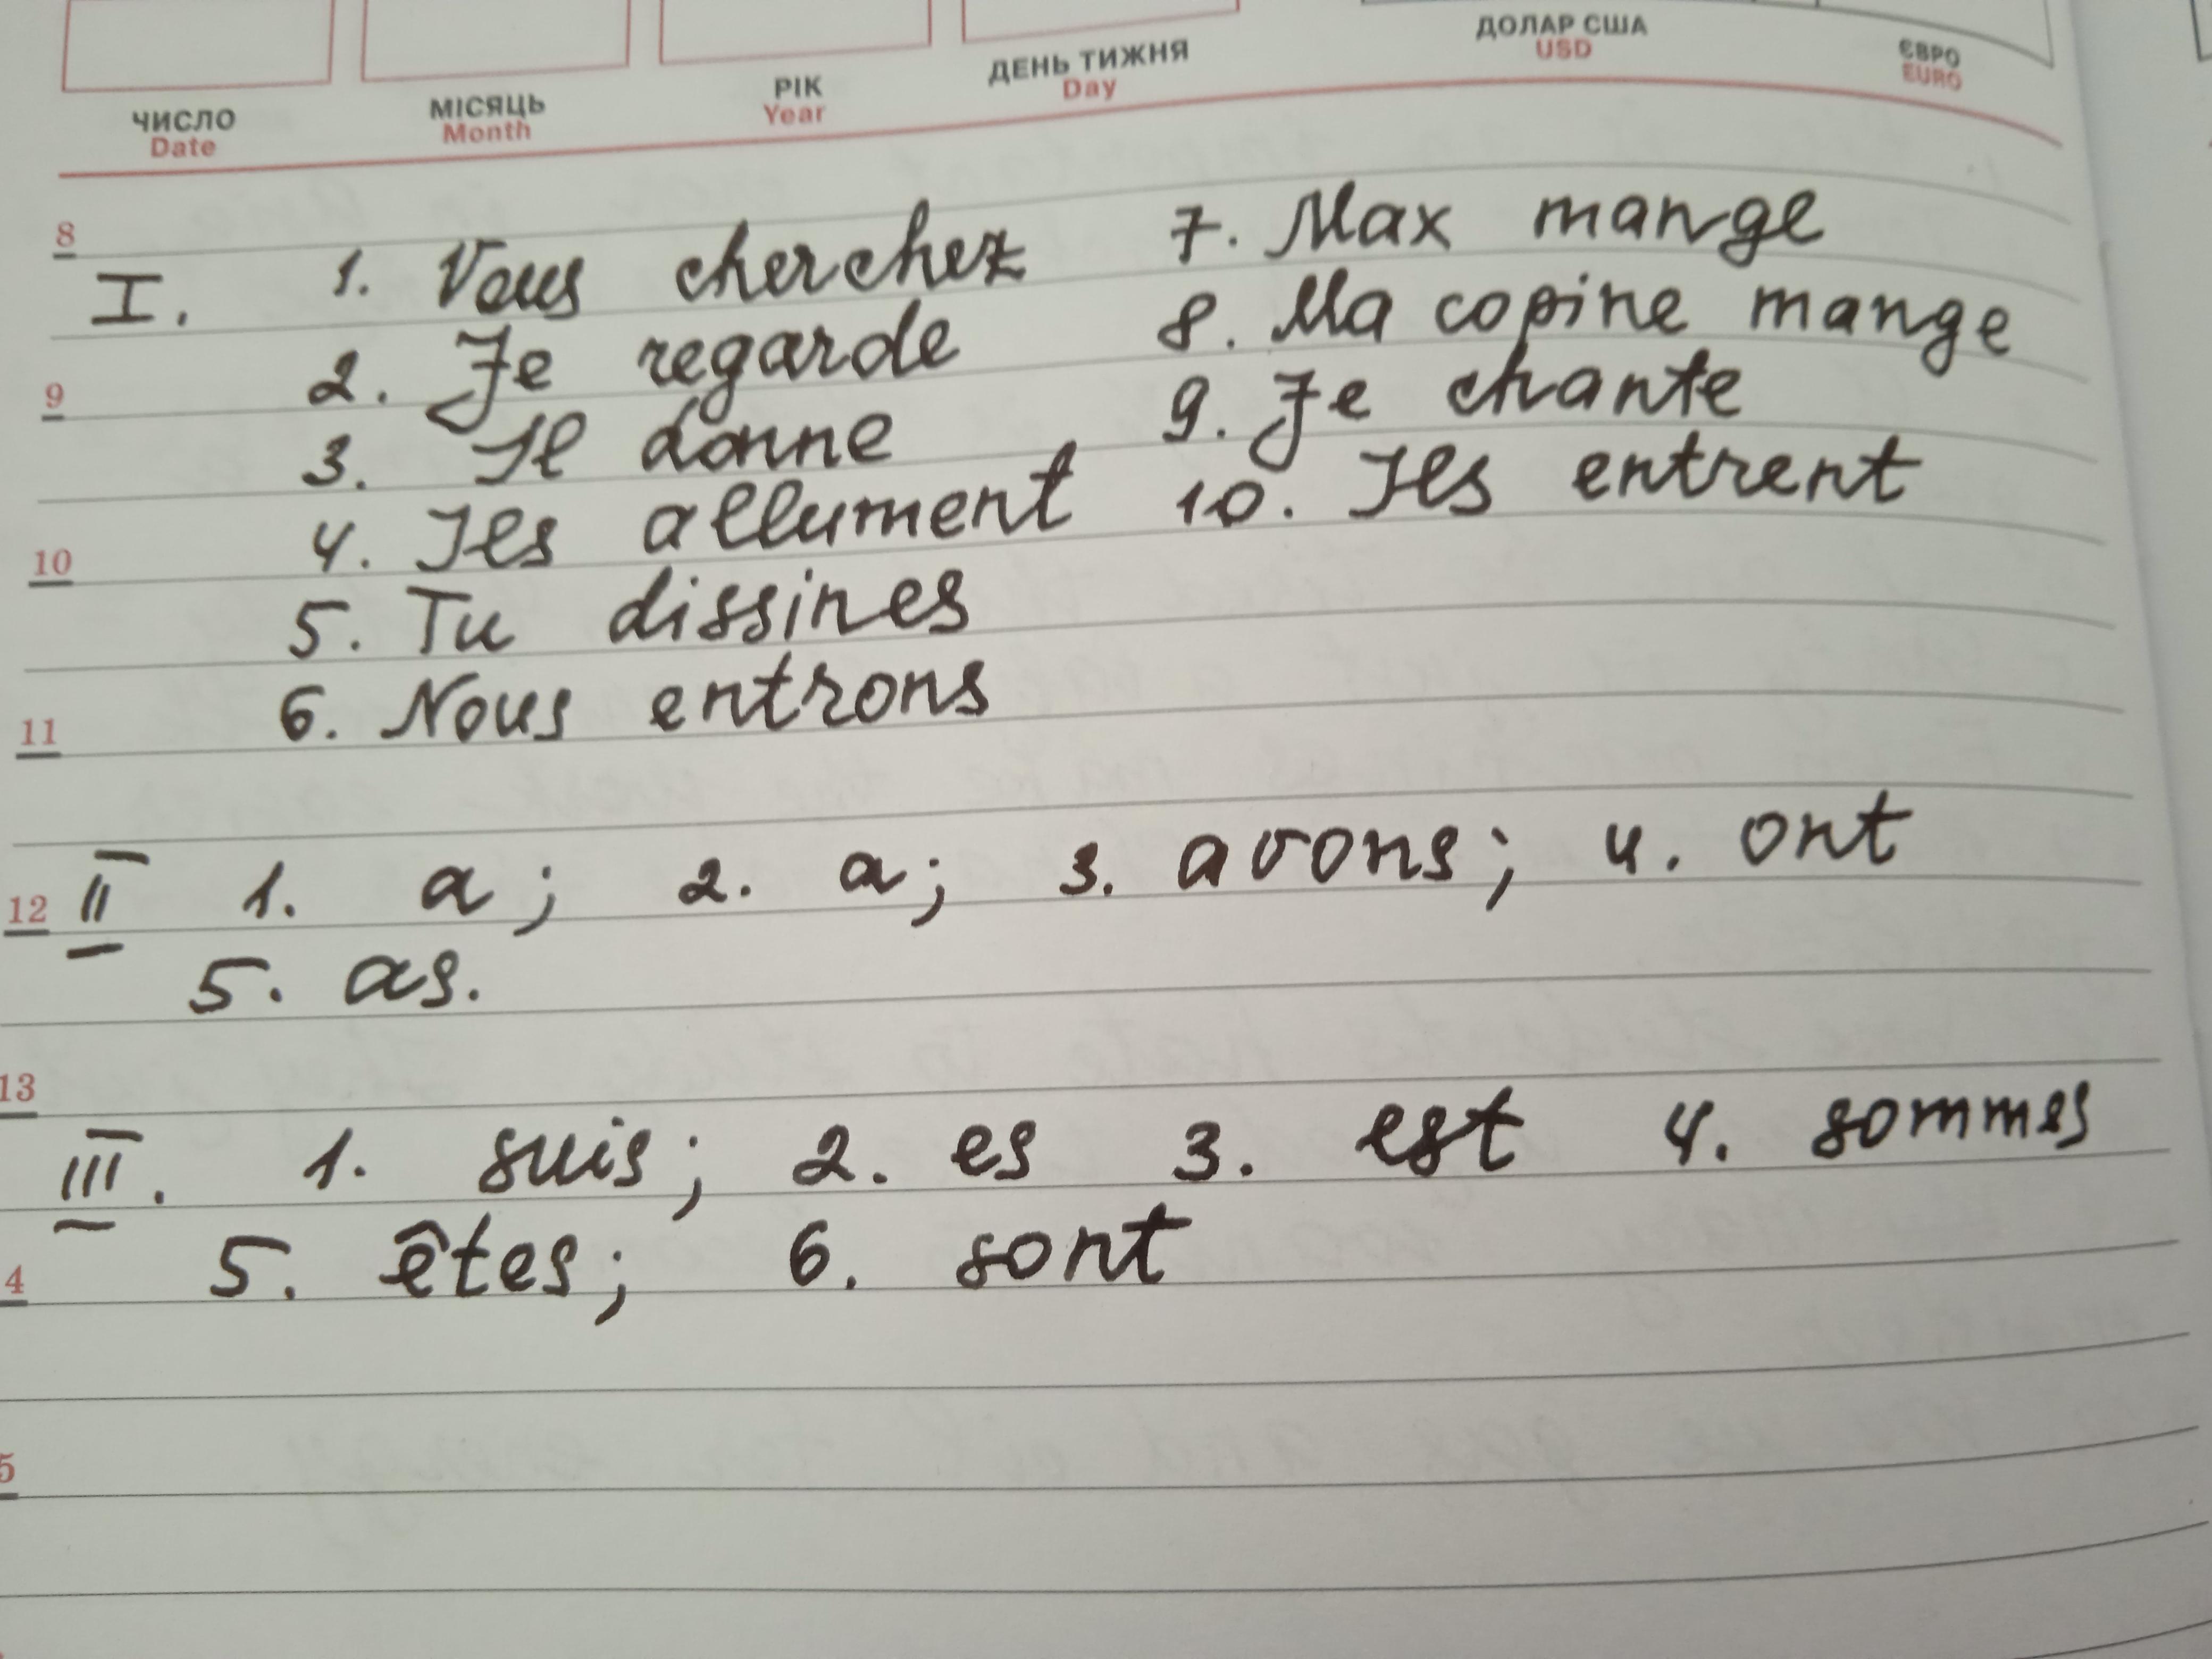 ЧИСЛО
Date
МІСЯЦЬ
Month
РІК
Year
ДЕНЬ ТИЖНЯ
Day
ДОЛАР США
USD
ЄВРО
EURO
8
I. 1. Vous cherchez
2. Je regarde
9
3. Il donne
4. Ils allument
10
5. Tu dissines
6. Nous entrons
11
7. Max mange
8. Ma copine mange
9. Je chante
10. Ils entrent
12
II 1. a; 2. a; 3. avons; 4. ont
5. as.
13
III. 1. suis; 2. es 3. est 4. sommes
4
5. êtes; 6. sont
5